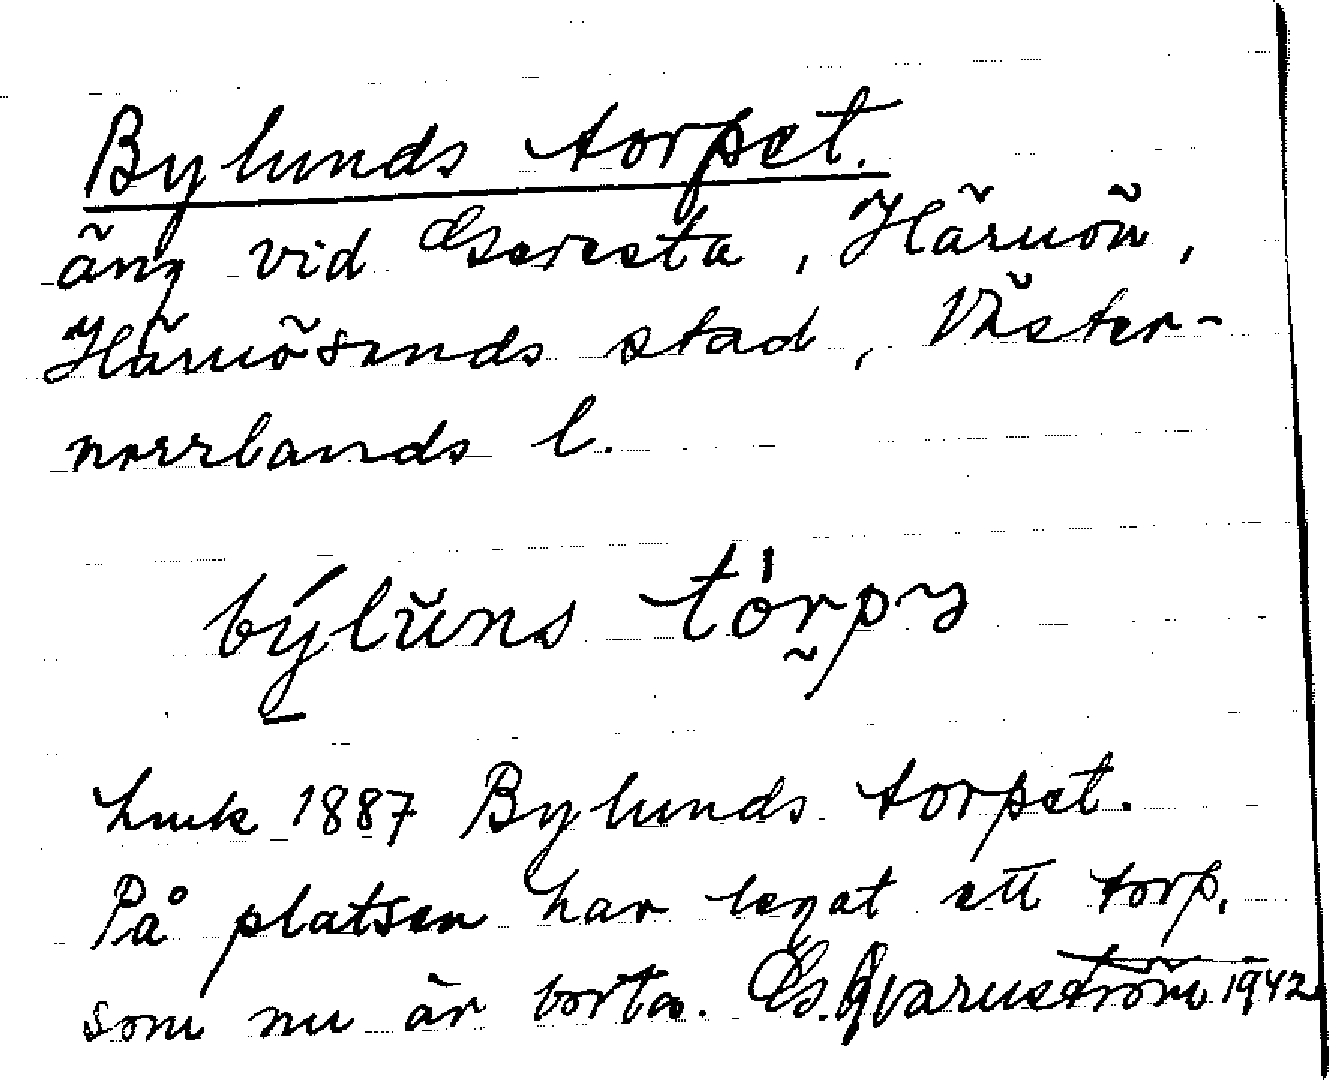 Bylunds torpet.
äng vid Geresta, Härnön,
Härnösands stad, Väster-
norrlands l.
býlŭns tórpɜ
hmk 1887 Bylunds torpet.
På platsen har legat ett torp,
som nu är borta. G. Qvarnström 1942